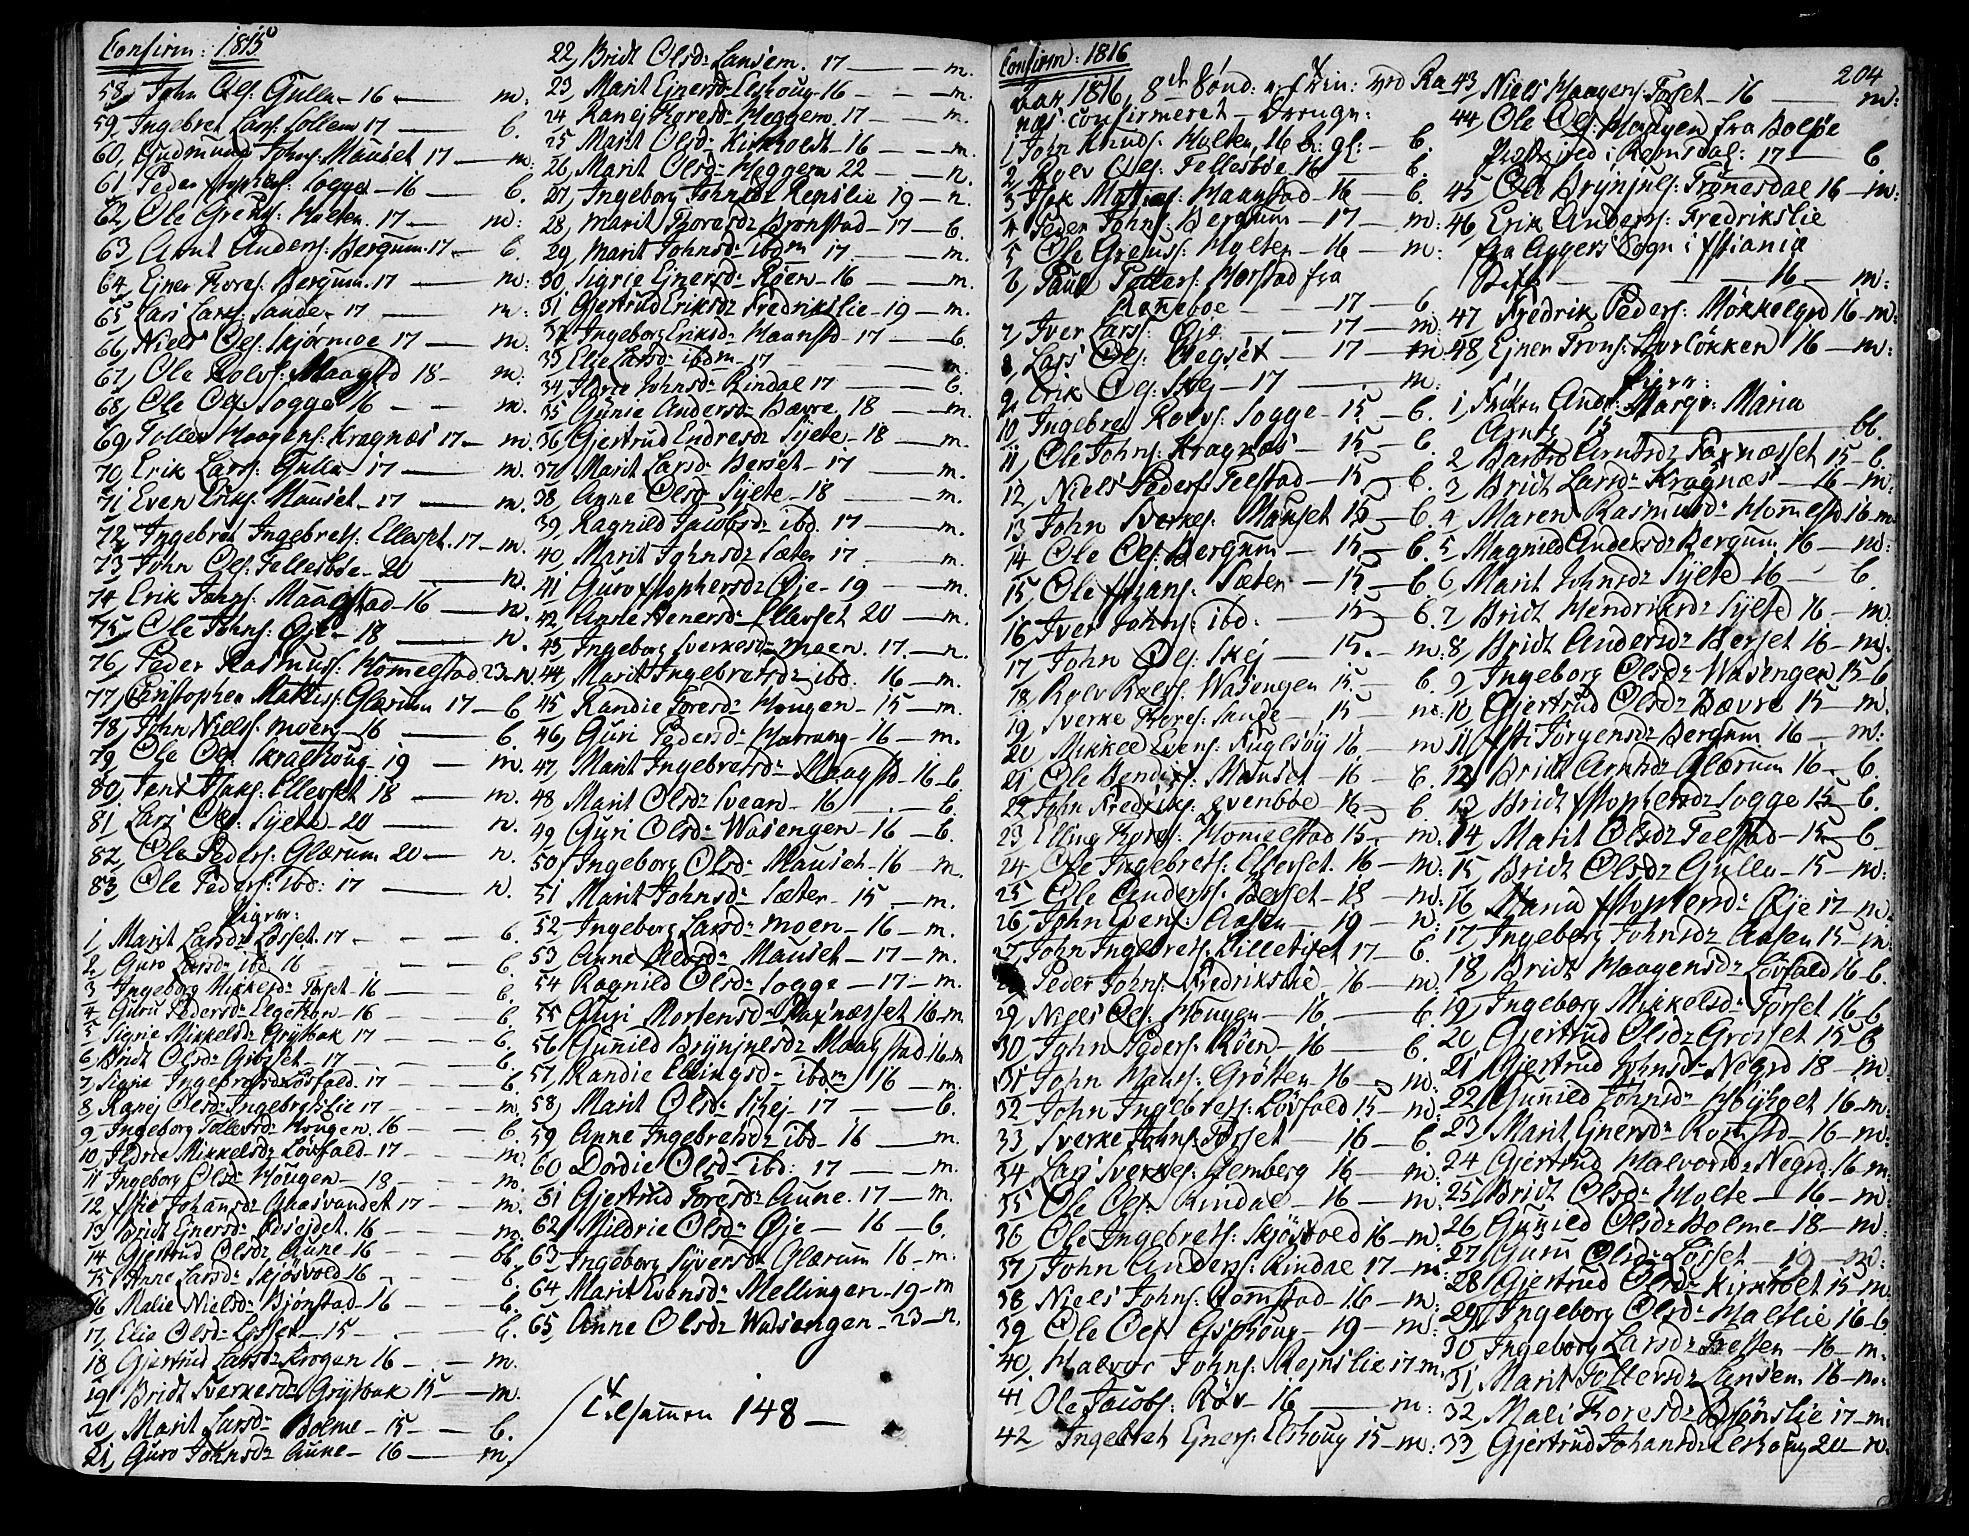 Confirm: 1815
58, John Ols: Gulla - 16 — m.
59, Ingebret Lars: Sollem 17 — b.
60, Gudmund Johns: Mauset 17 — m.
61, Peder Xstophers: Sogge - 16 — b.
62, Ole Grems: Holten. 17 — m:
63, Arnt Anders: Bergum. 17 - b.
64, Ejner Tores: Bergum. 17 — m:
65, Lars Lars: Sande. 17 — m:
66, Niels Ols: Skjørmoe 17 — m:
67, Ole Rolvs: Maagstd 18 - m:
68, Ole Ols: Sogge 16 — m.
69, Tollev Haagens: Kragnæs 17 — m.
70, Erik Lars: Gulla 17 — m.
71, Even Eriks: Mauset - 17 — m.
72, Ingebret Ingebrets: Ellevset. 17 — m.
73, John Ols: Fellesbøe - 20 — n.
74, Erik Johns: Maagstad - 16 — n.
75, Ole Johns: Øje - 18 — n.
76, Peder Rasmus: Hommelstad 23 - n.
77, Christopher Mattis: Glærum 17 — b
78, John Niels: Moen - 16 — b.
79, Ole Ols: Skralthoug - 19 — m.
80, Jens Isaks: Ellevset 18 — m.
81, Lars Ols: Sylte - 20 — n.
82, Ole Peders: Glærum 20 — n.
83, Ole Peders: ibd: 17 — n.
Piger:
1, Marit Larsd: Løsset. 17 - — b.
2, Guro Larsd: ibd 16 — b.
3, Ingeborg Mikkelsd: Torset - 16 — b.
4, Guru Pedersd: Elgethon - 16 — b.
5, Sigrie Mikkelsd: Grytbak 17 - — b.
6, Bridt Olsd: Grøsset - 17 — b.
7, Signe Ingebretsd: Løvfald. 17 — b.
8, Ranej Olsd: Ingebretslie 17 - — m.
9, Ingeborg Tollevsd: Hougen. 16 — b.
10, Ildrie Mikkelsd: Løvfald - 17 — m.
11, Ingeborg Olsd: Hougen - 18 — m.
12, Sissie Johansd: Gaasvandet 17 — m.
13, Bridt Ejnersd: Rosejdet. 16 — m.
14, Gjertrud Olsd: Aune - 16 — bb.
15, Anne Larsd: Skjøsvold 16 - — b.
16, Malie Nielsd: Bjønstad - 16 — b.
17, Elie Olsd: Løsset - 15 - — b.
18, Gjertrud Larsd: Krogen 16 - — m.
19, Bridt Sverkesd: Grytbak 15 — m.
20, Marit Larsd: Bolme - 15 - — b.
21, Guro Johnsd: Aune - 16 — m
22, Bridt Olsd: Lansem. 17 — m.
23, Marit Ejnersd: Elshoug - 16 — m.
24, Ranej Toresd: Heggem. 17 — m.
25, Marit Olsd: Kirkholdt - 16 — m.
26, Marit Olsd: Heggem 22 — n.
27, Ingeborg Johnsd: Remslie 19 — n.
28, Marit Toresd: Bjønstad - 17 — b.
29, Marit Johnsd: ibdm 17. — m.
30, Sigrie Ejnersd: Røen - 16 — m.
31, Gjertrud Eriksd: Fredrikslie - 19 — m.
32, Ingeborg Eriksd: Haanstd - 17 — b.
33, Elie Larsd: ibdm - 17 — m.
34, Ildrie Johnsd: Rindal 17 — b.
35, Gunie Andersd: Bævre. 18 — m.
36, Gjertrud Endresd: Sylte - 18 — m.
37, Marit Larsd: Berset - 17 — m.
38, Anne Olsd: Sylte - 18 — m.
39, Ragnild Jacobsd: ibd. 17 — m.
40, Marit Johnsd: Sæter 17 — m.
41, Guro Xstophersd: Øje - 19 — m.
42, Anne Stenersd: Ellevset 20 — m.
43, Ingeborg Sverkesd: Moen. 17. — n.
44, Marit Ingebretsd: ibd. 16 — m.
45, Randie Toresd: Hougen - 15 — m.
46, Guri Pedersd: Harrang - 16 — m.
47, Marit Ingebretsd: Maagstd - 16 - b.
48, Marit Olsd: Svean - 16 — b.
49, Guri Olsd: Wasengen - 16 — b.
50, Ingeborg Olsd: Mauset - 16 — m.
51, Marit Johnsd: Sæter - 15. — m.
52, Ingeborg Larsd: Moen - 16 — m.
53, Anne Olsd: Mauset - 17 — m.
54, Ragnild Olsd: Sogge - 17 — m.
55, Guri Mortensd: Saxnæsset 16 - m.
56, Gunild Brynjnesd: Maagstad 16 - m
57, Randie Ellingsd: ibdm 16 — m.
58, Marit Olsd: Skej - 17 — b.
59, Anne Ingebretsd: ibd - 16 — m.
60, Dordie Olsd: ibd: 17 — m.
61, Gjertrud Toresd: Aune. 17 — m.
62, Mildrie Olsd: Øje — 16 — b.
63, Ingeborg Syversd: Glærum 16 — m.
64, Marit Evensd: Mellingen - 19 — m
65, Anne Olsd: Wasengen - 23 — n.
Tilsammen 148 —
Confirm: 1816
204
Aar 1816, 8de Sønd: e: Trin: wed Ra
næs confirmeret — Drenge:
1, John Knuds: Holten, 16 b: gl: — b.
2, Rolv Ols: Fellesbøe 16 — b.
3, Isak Mattias: Haanstad - 16 — b.
4, Peder Johns: Bergum - 17 — m:
5, Ole Grems: Holten - 16 — m:
6, Paul Petters: Horstad fra
Raneboe — 17 — b
7, Iver Lars: Øie — 17 — m:
8, Lars Ols: Aegset — 17 — m
9, Erik Ols: Skej — 17 — m:
10, Ingebret Rolvs: Sogge - 15 — b.
11, Ole Johns: Kragnæs — 15 — b.
12, Niels Peders: Telstad - 15 — b.
13, John Sverkes: Mauset 15 — b.
14, Ole Ols: Bergum — 15 — b.
15, Ole Xstians: Sæter — 15 — b
16, Iver Johns: ibd. — 15 — b.
17, John Ols: Skej — 15 — m:
18, Rolv Rolvs: Wasengen 15 — b.
19, Sverke Tores: Sande — 15 — m:
20, Mikkel Evens: Fuglsøy 16 — m
21, Ole Bendix: Mauset — 16 — b.
22, John Fredriks: Evenbøe - 16 — b.
23, Elling Tores: Hommelstad 15 — m:
24, Ole Ingebrets: Ellevset. 16 — m:
25, Ole Anders: Berset - 18 — m:
26, John Evens: Aasen — 19 — n:
27, John Ingebrets: Lilletiset 17 — b.
28, Peder Johns: Fredrikslie — 16 — m:
29, Niels Ols: Hougen — 16 — b.
30, John Peders: Røen — 16 — b.
31, John Hans: Grøtten - 16 — m:
32, John Ingebrets: Løvfald 15 — m:
33, Sverke Johns: Torset 16 — b
34, Lars Sverkes: Gjemberg 16 — m:
35, Ole Ols: Rindal — 16 — m:
36, Ole Ingebrets: Skjøsvold 16 — m:
37, John Anders: Rindal 17 — m:
38, Niels Johns: Romstad - 16 — m:
39, Ole Ols: Gjsphoug - 19 — m:
40, Halvor Johns: Remslie 17 m.
41, Ole Jacobs: Røv - 16 — m:
42, Ingebret Ejners: Elshoug 15 — m:
43, Niels Haagens: Torset - 16 — m:
44, Ole Ols: Haagen fra Bolsøe
Præstegield i Romsdal: 17 — b.
45, Ole Brynjuls: Trønesdal 16 — m:
46, Erik Anders: Fredrikslie
fra Aggers Sogn i Xstiania
Stift — 16 — m:
47, Fredrik Peders: Møkkelgrd 16 - m:
48, Ejner Trons: Surløkken 16 — m:
Piger:
1, Frøken Andr: Margr: Maria
Arntz 15 — bb.
2, Barbro Arntsd: Saxnæsset 15 - b.
3, Bridt Larsd: Kragnæs - 16 - m:
4, Maren Rasmusd: Hommelstd 16 - m.
5, Magnild Andersd: Bergum. 16 — m:
6, Marit Johnsd: Sylte - 16 — b.
7, Bridt Hendriksd: Sylte 16 — m:
8, Bridt Andersd: Berset 16 — m:
9, Ingeborg Olsd: Wasengen 15 - b
10, Gjertrud Olsd: Bævre 15 — m.
11, Sissi Jørgensd: Bergum. 16 — m:
12, Bridt Arntsd: Glærum 16 — b.
13, Bridt Xstophersd: Sogge 15 — b.
14, Marit Olsd: Telstad - 15 — b.
15, Bridt Olsd: Gulla - 15 — m:
16, Maria Xstophersd: Øje 17 — m:
17, Ingeborg Johnsd: Aasen 15 — m
18, Bridt Haagensd: Løvfald 16 - b.
19, Ingeborg Mikkelsd: Torset 16 - b
20, Gjertrud Olsd: Grøsset 15 - b
21, Gjertrud Johnsd: Negrd 18 — m:
22, Gunild Johnsd: Høyhget 16 - m:
23, Marit Ejnersd: Romstd - 16 — m:
24, Gjertrud Halvorsd: Negrd. 16 - m
25, Bridt Olsd: Holte — 16 — m:
26, Gunild Olsd: Bolme - 18 — m:
27, Guru Olsd: Løsset - 19 — m:
28, Gjertrud Olsd: Kirkholt 15 - m:
29, Ingeborg Olsd: Haltlie 16 - b
30, Ingeborg Larsd: Tressen - 16 — m.
31, Marit Tollevsd: Lansem. 16 — m:
32, Mali Toresd: Bjønslie 17 — m:
33, Gjertrud Johansd: Elshoug 20 — n.